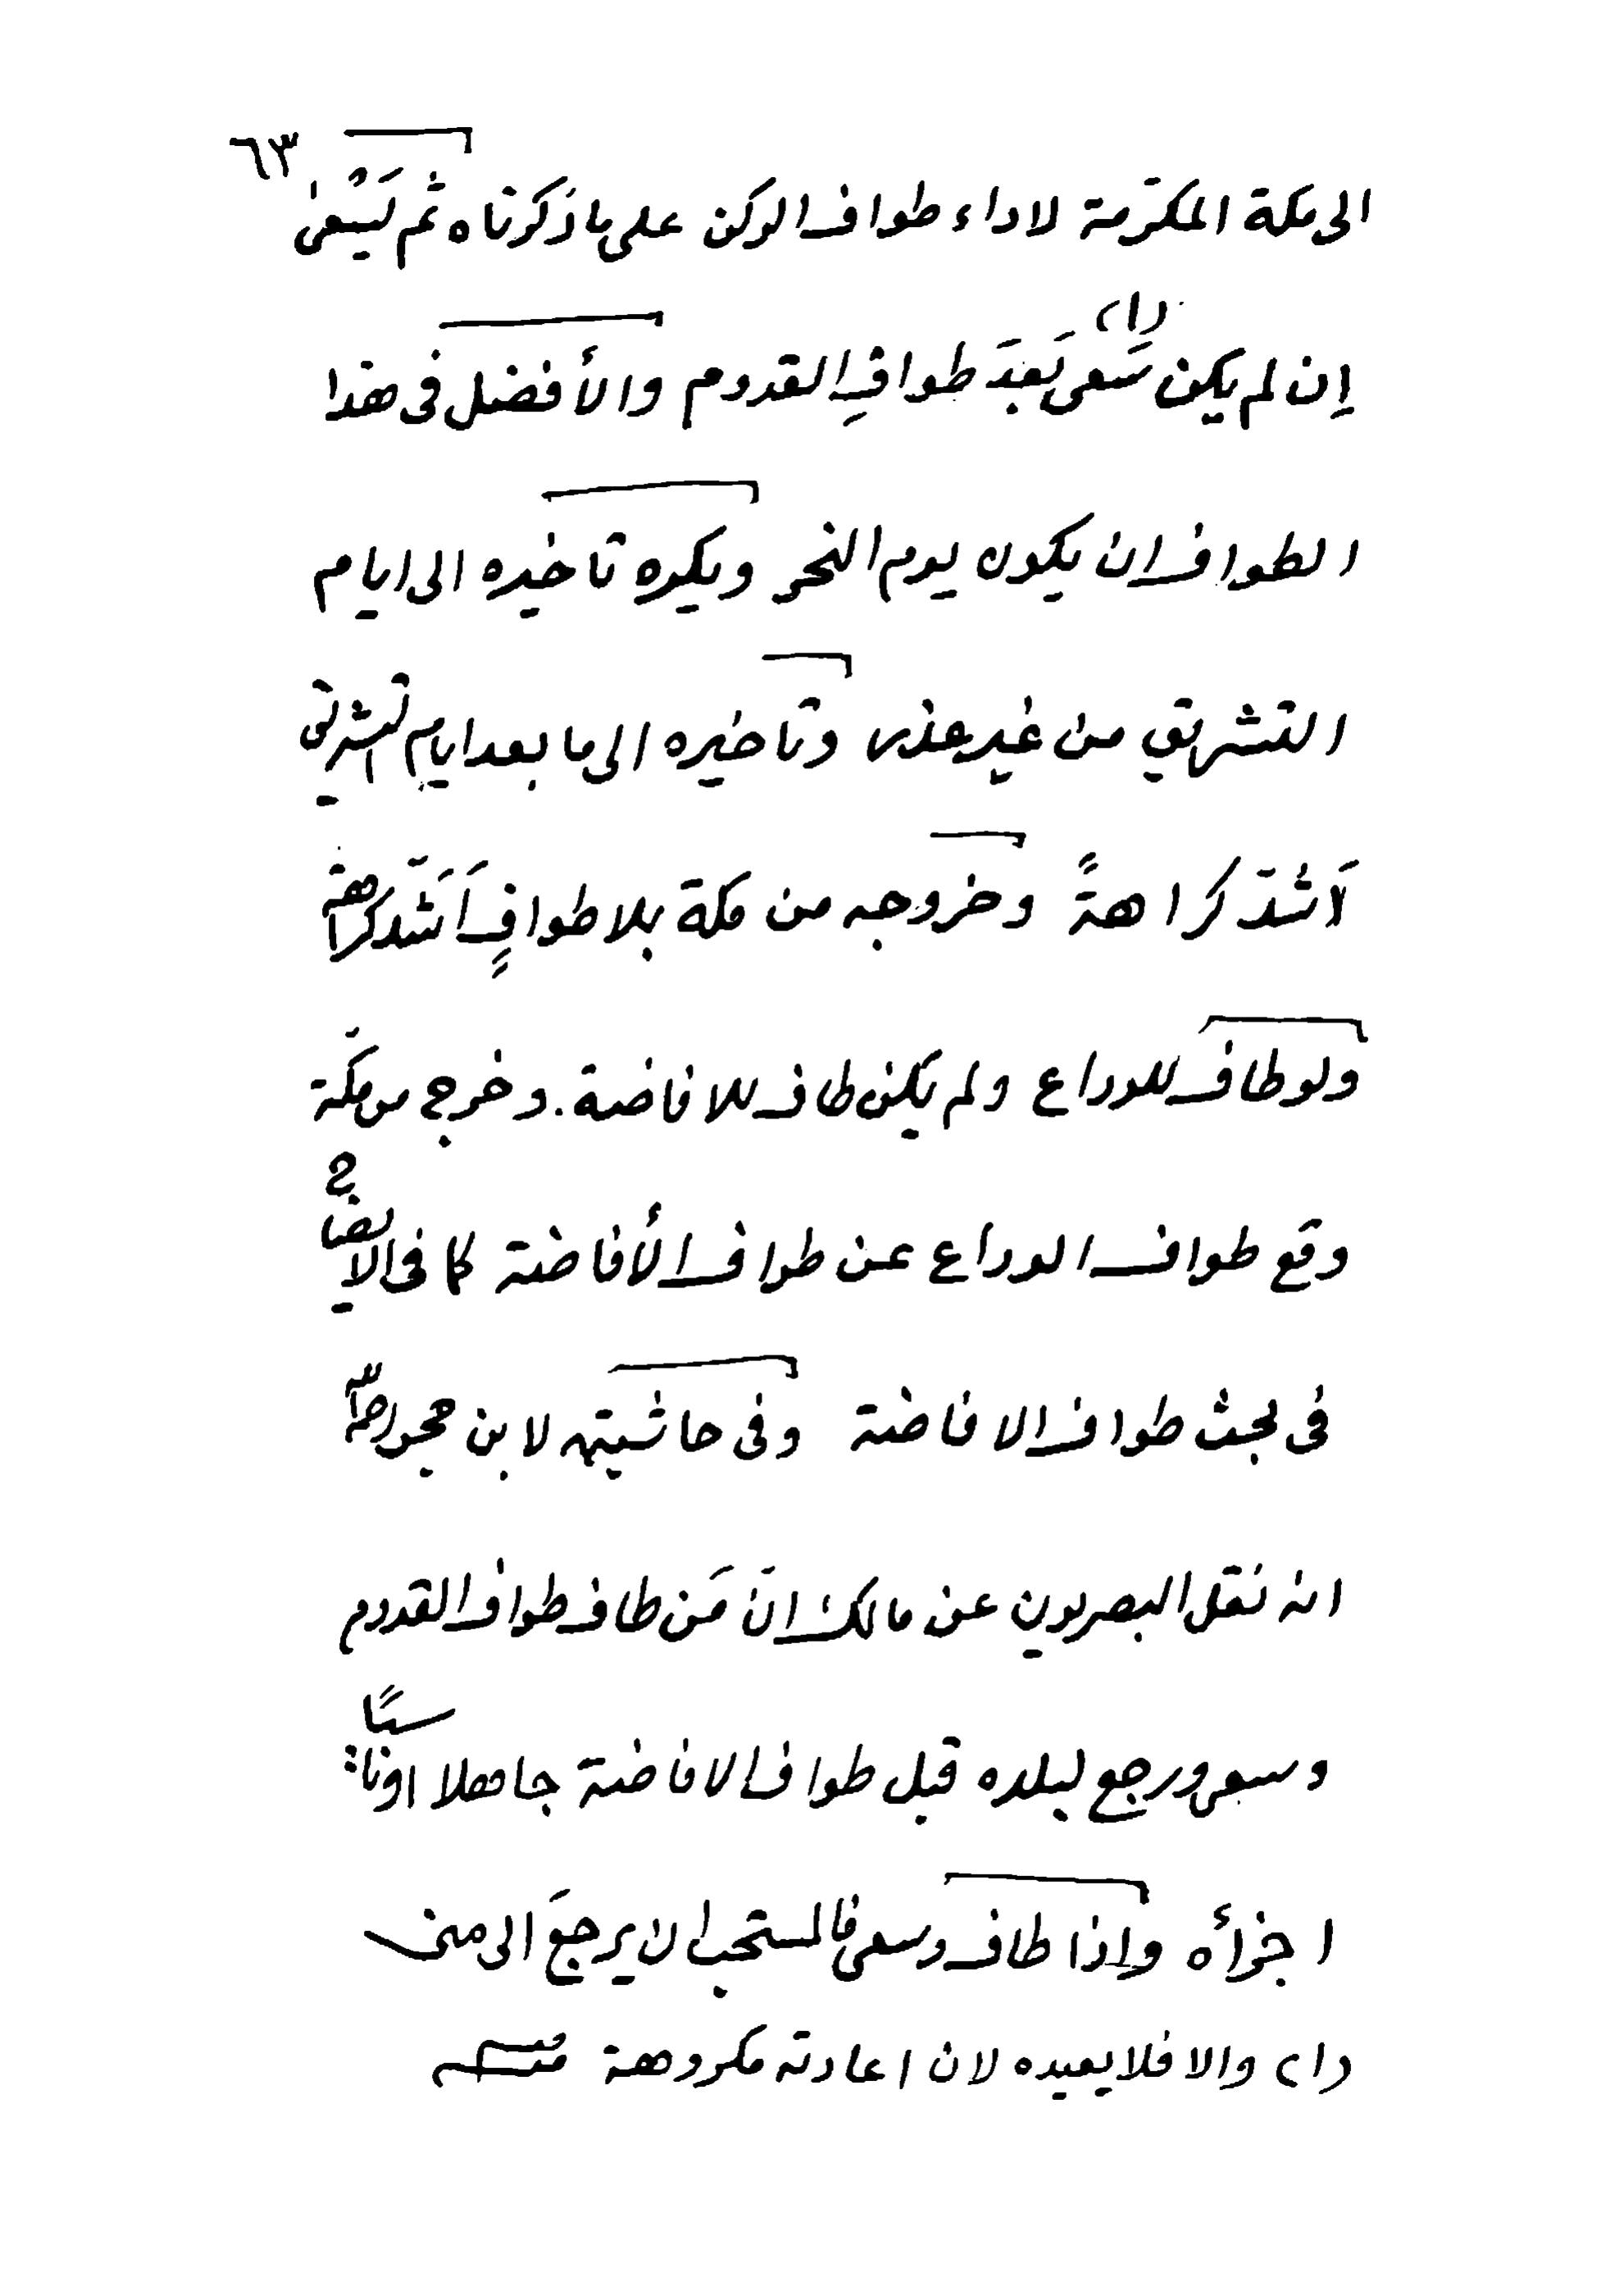 ٦٣
الى مكة المكرّمة لاداء طواف الركن على ما ذكرناه ثم يَسْعىٰ
إن لم يكن سَعى بَعدَ طوافِ القدوم والأفضل فى هذا (١)
الطواف ان يكون يوم النحر ويكره تاخيره الى ايام
التشريق من غير عذر وتاخيره الى ما بعد ايام التشريق
اَشدّ كراهةً وخروجه من مكة بلا طوافٍ اَشَدّ كراهة
ولو طاف للوداع ولم يكن طاف للافاضة. وخرج من مكّة
وقع طواف الوداع عن طواف الأفاضة كما فى الايضاح
فى بحث طواف الافاضة وفى حاشيته لابن حجر رحمه الله
انه نقل البصريون عن مالك انّ مَن طاف طواف القدوم
وسعى ورجع لبلده قبل طواف الافاضة جاهلا او ناسيًا
اجزأه واذا طاف وسعى فالمستحب ان يرجعَ الى منى
(١) والا فلا يعيده لان اعادته مكروهة